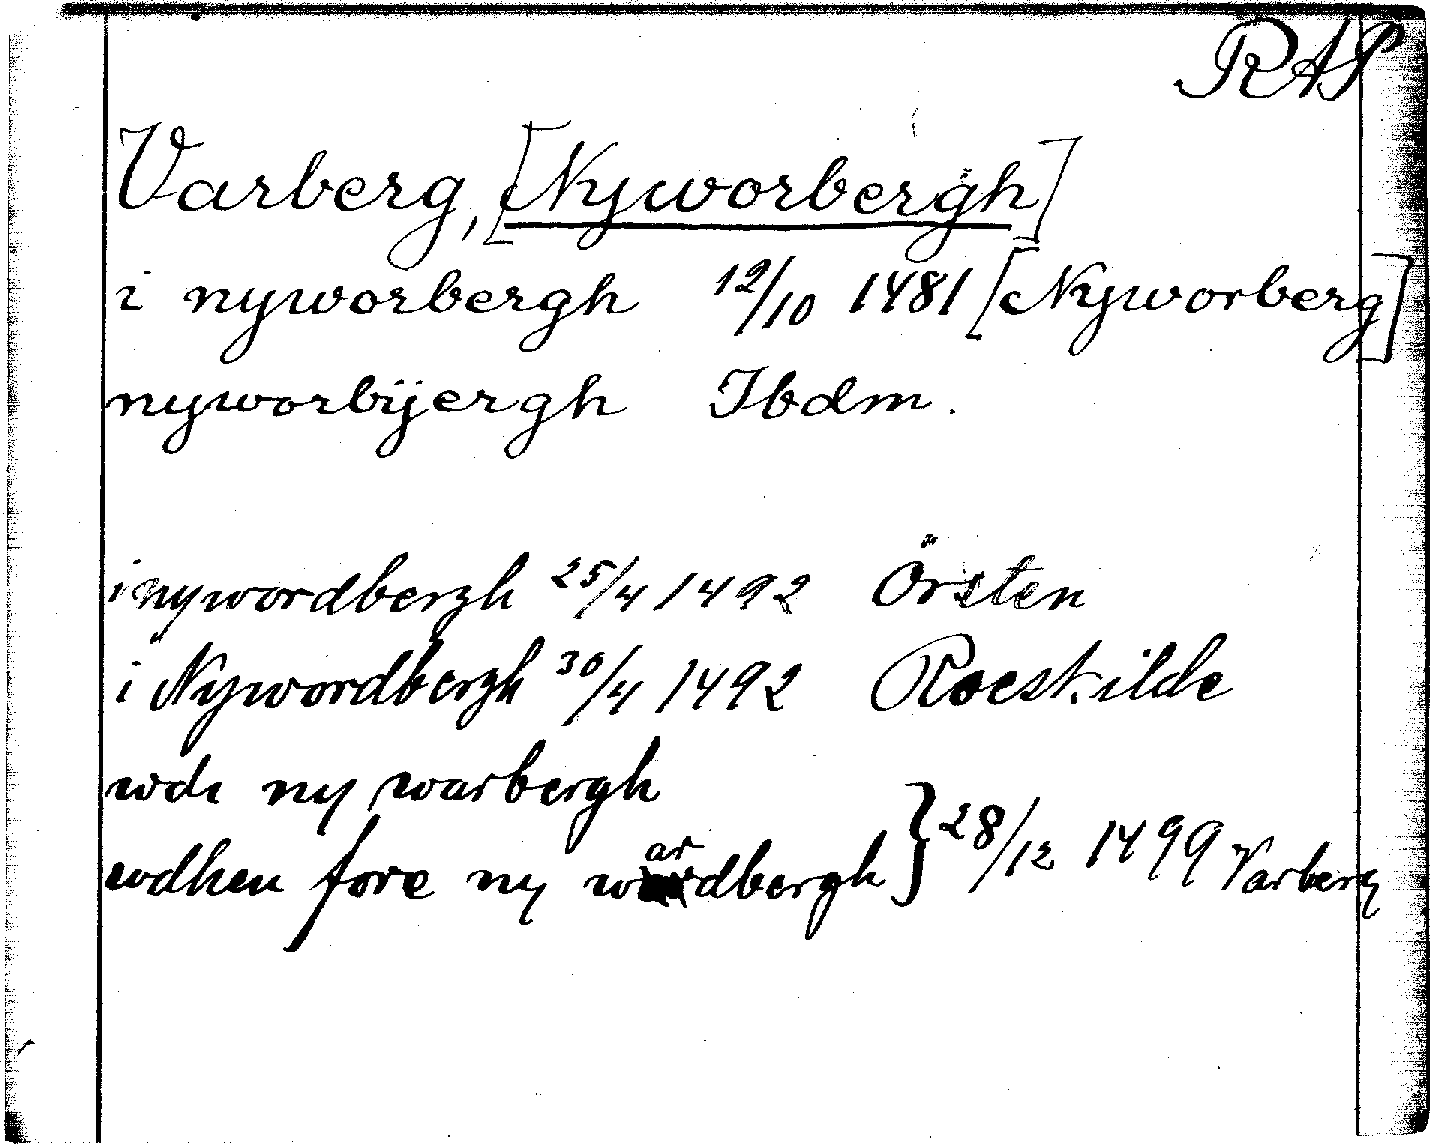 RAP
Varberg, [Nyworbergh]
i nyworbergh 12/10 1481 [Nyworberg]
nyworbijergh Ibdm.
i nywordbergh 25/4 1492 Örsten
i Nywordbergh 30/4 1492 Roeskilde
wdi ny warbergh
wdhen fore ny wardbergh } 28/12 1499 Varberg